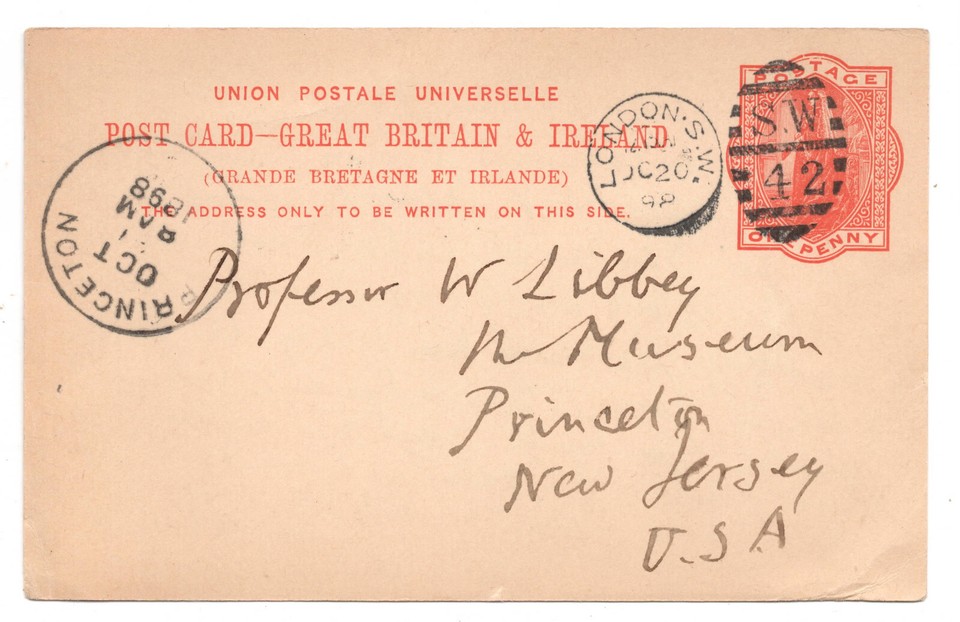 UNION POSTALE UNIVERSELLE
POST CARD—GREAT BRITAIN & IRELAND.
(GRANDE BRETAGNE ET IRLANDE)
THE ADDRESS ONLY TO BE WRITTEN ON THIS SIDE.
LONDON·S.W.
OC 20
98
POSTAGE
S.W
42
ONE PENNY
PRINCETON
OCT
8 AM
1898
Professor W Libbey
The Museum
Princeton
New Jersey
U.S A